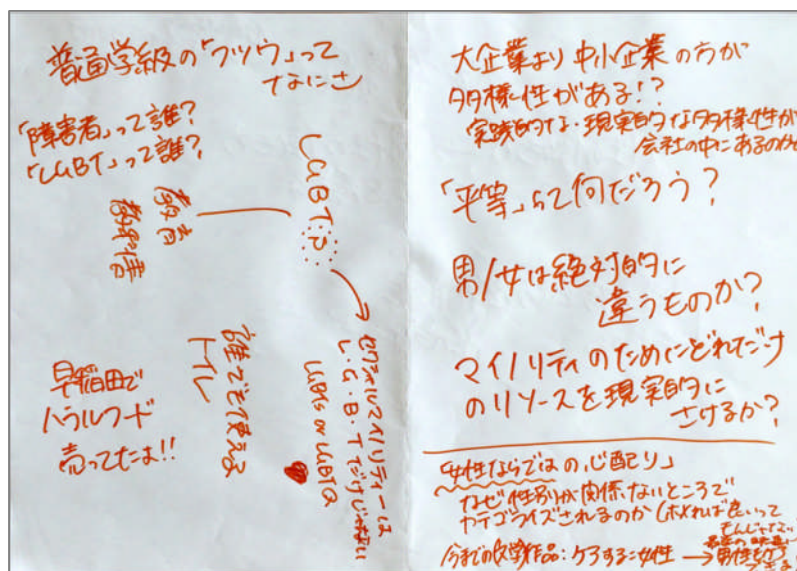 普通学級の「フツウ」って
なにさ
「障害者」って誰?
「LGBT」って誰?
LGBT:?
教育
教科書
セクシャルマイノリティーは
L・G・B・Tだけじゃない
LGBTs or LGBTQ
誰でも使える
トイレ
早稲田で
ハラルフード
売ってたよ!!
大企業より中小企業の方が
多様性がある!?
実践的な・現実的な多様性が
会社の中にあるのか
「平等」って何だろう?
男/女は絶対的に
違うものか?
マイノリティのためにどれだけ
のリソースを現実的に
さけるか?
「女性ならではの心配り」
なぜ性別が関係ないところで
カテゴライズされるのか(ホメれば良いって
もんじゃない
今までの文学作品:ケアする女性 → 男性もケア
できる